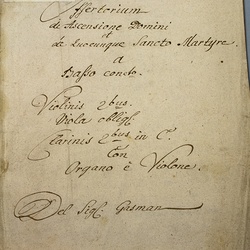 Offertorium
de Ascensione Domini
et
de Quocunque Sancto Martyre.
a
Basso conc:to.
Violinis 2bus.
Viola oblig:
Clarinis 2bus in C.
Con
Organo è Violone.
Del Sig: Gasman